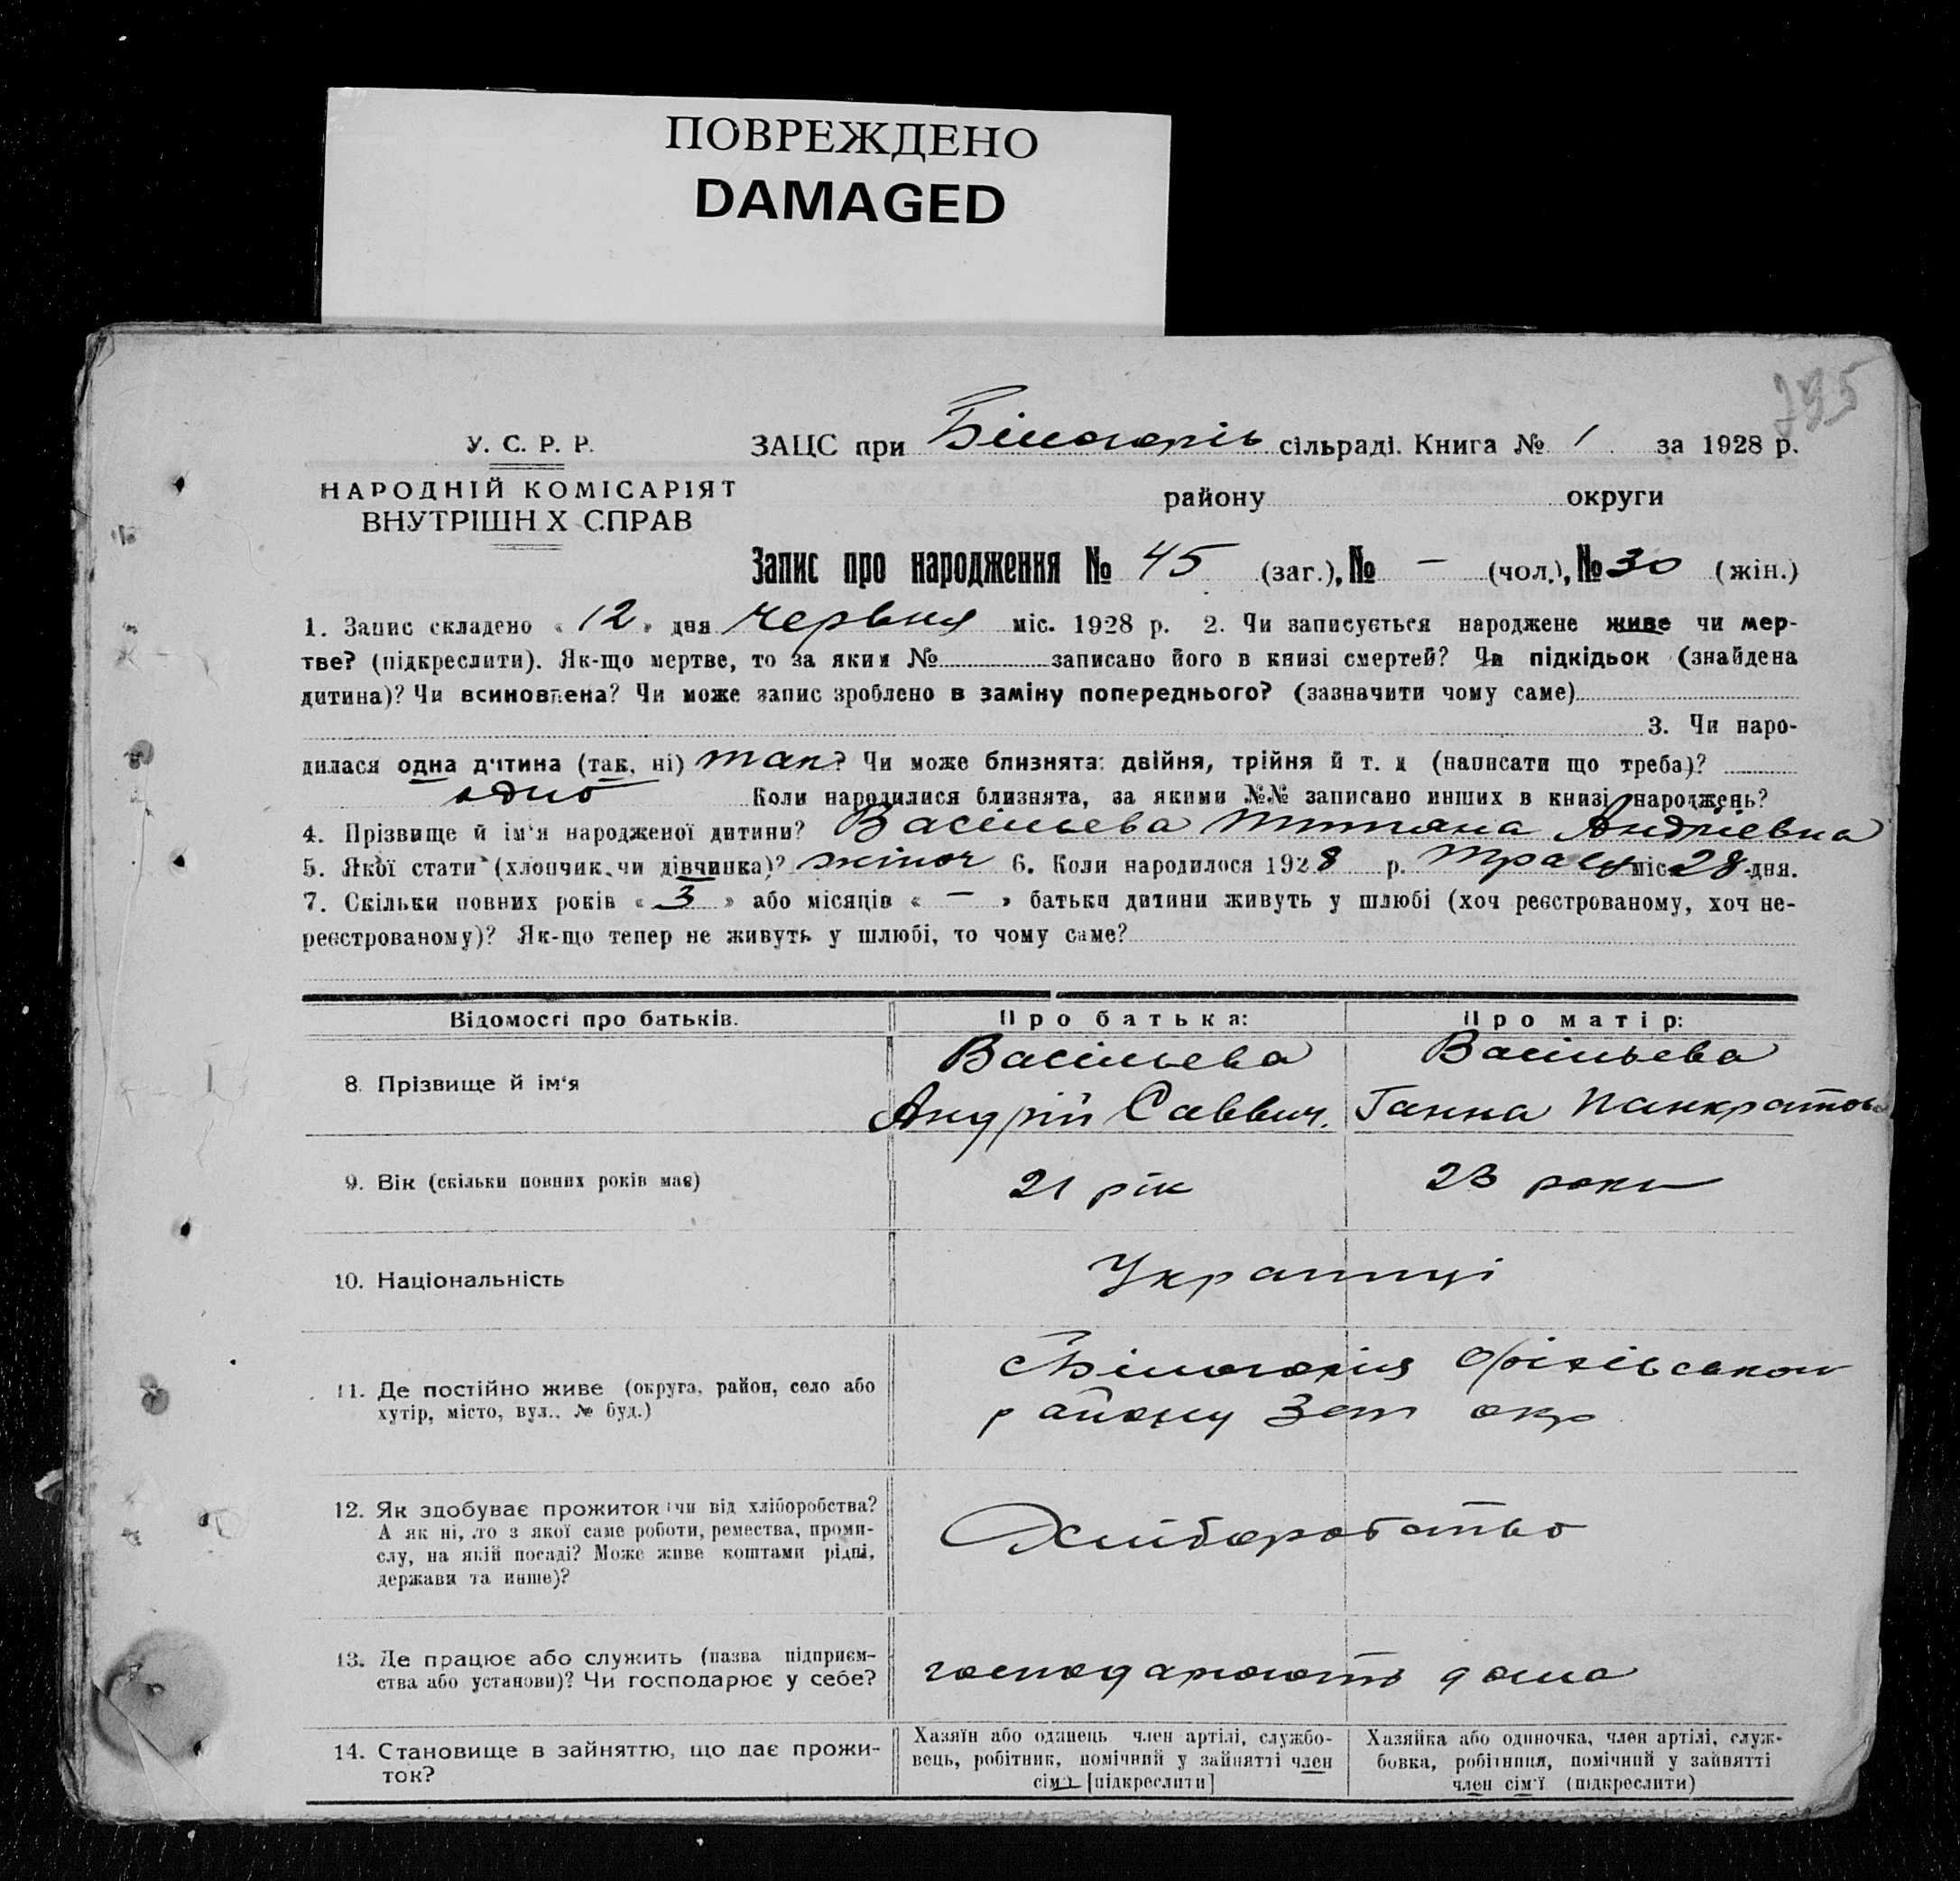 ПОВРЕЖДЕНО
DAMAGED
795
У. С. Р. Р.
НАРОДНІЙ КОМІСАРІЯТ
ВНУТРІШН Х СПРАВ
ЗАЦС при Білогорів сільраді. Книга № 1 за 1928 р.
району округи
Запис про народження № 45 (заг.), № — (чол.), № 30 (жін.)
1. Запис складено « 12 » дня червня міс. 1928 р. 2. Чи записується народжене живе чи мер-
тве? (підкреслити). Як-що мертве, то за яким № записано його в книзі смертей? Чи підкідьок (знайдена
дитина)? Чи всиновлена? Чи може запис зроблено в заміну попереднього? (зазначити чому саме)
3. Чи наро-
дилася одна дитина (так, ні) так? Чи може близнята: двійня, трійня й т. д (написати що треба)?
одно Коли народилися близнята, за якими №№ записано инших в книзі народжень?
4. Прізвище й ім'я народженої дитини? Васільєва Тітяна Андрієвна
5. Якої стати (хлопчик, чи дівчинка)? жіноч 6. Коли народилося 1928 р. травня міс 28 дня.
7. Скільки повних років « 3 » або місяців « — » батьки дитини живуть у шлюбі (хоч реєстрованому, хоч не-
реєстрованому)? Як-що тепер не живуть у шлюбі, то чому саме?
Відомості про батьків.
Про батька:
Про матір:
8. Прізвище й ім'я
Васільєва
Андрій Саввич.
Васільєва
Ганна Панкратов
9. Вік (скільки повних років має)
21 рік
23 роки
10. Національність
Українці
11. Де постійно живе (округа, район, село або
хутір, місто, вул., № буд.)
Білогорія
району Зап окр
12. Як здобуває прожиток (чи від хліборобства?
А як ні, то з якої саме роботи, ремества, проми-
слу, на якій посаді? Може живе коштами рідні,
держави та инше)?
Хліборобство
13. Де працює або служить (назва підприєм-
ства або установи)? Чи господарює у себе?
господарюють дома
14. Становище в зайняттю, що дає прожи-
ток?
Хазяїн або одинець член артілі, службо-
вець, робітник, помічний у зайнятті член
сім'ї [підкреслити]
Хазяйка або одиночка, член артілі, служ-
бовка, робітниця, помічний у зайнятті
член сім'ї (підкреслити)